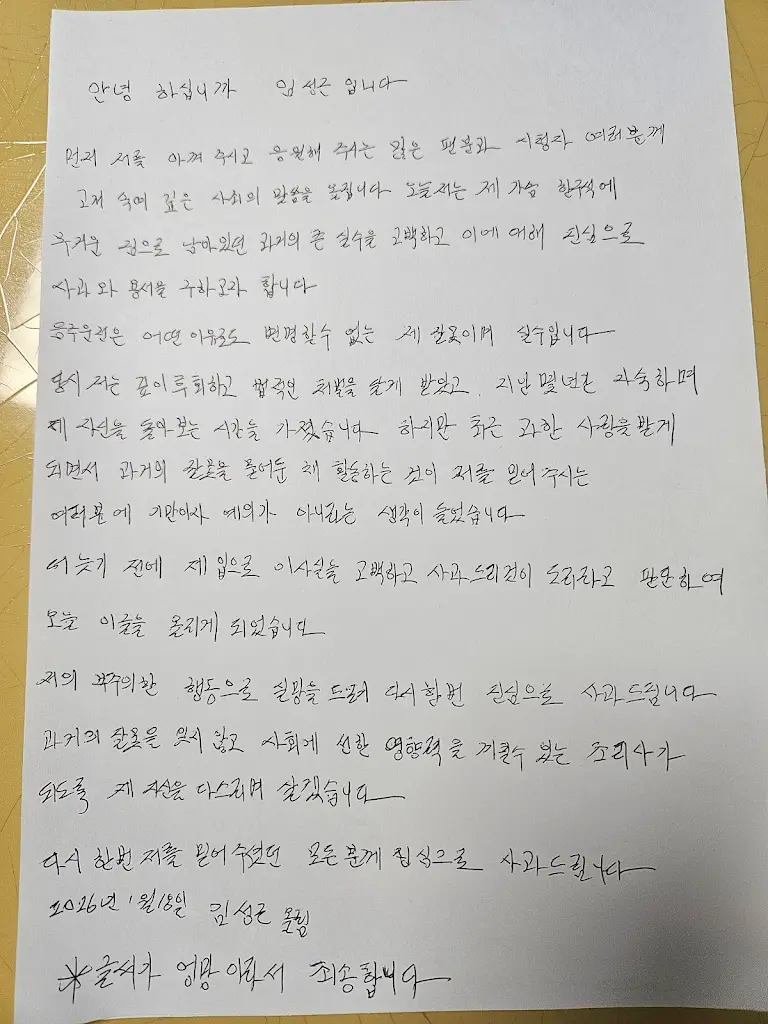 안녕 하십니까 임성근 입니다
먼저 저를 아껴 주시고 응원해 주시는 많은 팬분과 시청자 여러분께
고개 숙여 깊은 사죄의 말씀을 올립니다 오늘 저는 제 가슴 한구석에
무거운 짐으로 남아있던 과거의 큰 실수을 고백하고 이에 대해 진심으로
사과와 용서을 구하고자 합니다
음주운전은 어떤 이유로도 변명할수 없는 제 잘못이며 실수입니다
당시 저는 깊이 후회하고 법적인 처벌을 달게 받았고. 지난 몇년간 자숙하며
제 자신을 돌아보는 시간을 가졌습니다 하지만 최근 과한 사랑을 받게
되면서 과거의 잘못을 묻어둔 채 활동하는 것이 저를 믿어 주시는
여러분에 기만이자 예의가 아니라는 생각이 들었습니다
더 늦기 전에 제 입으로 이사실을 고백하고 사과드리것이 도리라고 판단하여
오늘 이글을 올리게 되었습니다
저의 부주의한 행동으로 실망을 드려 다시한번 진심으로 사과드립니다
과거의 잘못을 잊지 않고 사회에 선한 영향력을 끼칠수 있는 조리사가
되도록 제 자신을 다스리며 살겠습니다
다시 한번 저를 믿어 주셨던 모든분께 진심으로 사과드립니다
2026년 1월18일 임성근 올림
*글씨가 엉망 이라서 죄송합니다